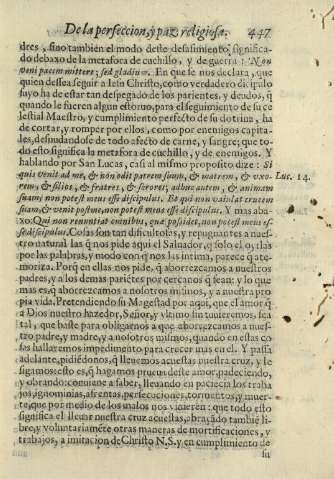 De la perfeccion, y paz religiosa. 447
dres, sino también el modo deste desasimiento, significa-
do debaxo de la metafora de cuchillo, y de guerra: Non
veni pacem mittere, sed gladium. En que se nos declara, que
quien dessea seguir a Iesu Christo, como verdadero dicipulo
suyo ha de estar tan despegado de los parientes, y deudos, q̃
quando le fueren algun estoruo, para el seguimiento de su ce
lestial Maestro, y cumplimiento perfecto de su dotrina, ha
de cortar, y romper por ellos, como por enemigos capita-
les, desnudandose de todo afecto de carne, y sangre; que to-
do esto significa la metafora de cuchillo, y de enemigos. Y
hablando por San Lucas, casi al mismo proposito dize: Si
quis venit ad me, & non odit patrem suum, & matrem, & vxo- Luc. 14.
rem, & filios, & fratres, & sorores; adhuc autem, & animam
suam, non potest meus esse discipulus. Et qui non vaiulat crucem
suam, & venit post me, non potest meus esse discipulus. Y mas aba-
xo: Qui non renuntiat omnibus, quæ possidet, non potest meus es
se discipulus. Cosas son tan dificultosas, y repugnantes a nues-
tro natural las q̃ nos pide aqui el Saluador, q̃ solo el oyrlas
por las palabras, y modo con q̃ nos las intima, parece q̃ ate-
moriza. Porq̃ en ellas nos pide, q̃ aborrezcamos a nuestros
padres, y a los demas pariẽtes por cercanos q̃ sean; y lo que
mas es, q̃ aborrezcamos a nosotros mismos, y a nuestra pro
pia vida. Pretendiendo su Magestad por aqui, que el amor q̃
a Dios nuestro hazedor, Señor, y vltimo fin tuuieremos, sea
tal, que baste para obligarnos a que aborrezcamos a nues-
tro padre, y madre, y a nosotros mismos, quando en estas co
sas hallaremos impedimento para crecer mas en el. Y passa
adelante, pidiẽdonos, q̃ lleuemos acuestas nuestra cruz, y le
sigamos: esto es, q̃ hagamos prueua deste amor, padeciendo,
y obrando: conuiene a saber, lleuando en paciẽcia los traba
jos, ignominias, afrentas, persecuciones, tormentos, y muer-
te, que por medio de los malos nos vinieren: que todo esto
significa el lleuar nuestra cruz acuestas, abraçãdo tambiẽ li-
bre, y voluntariamẽte otras maneras de mortificaciones, y
trabajos, a imitacion de Christo N.S. y en cumplimiento de
su